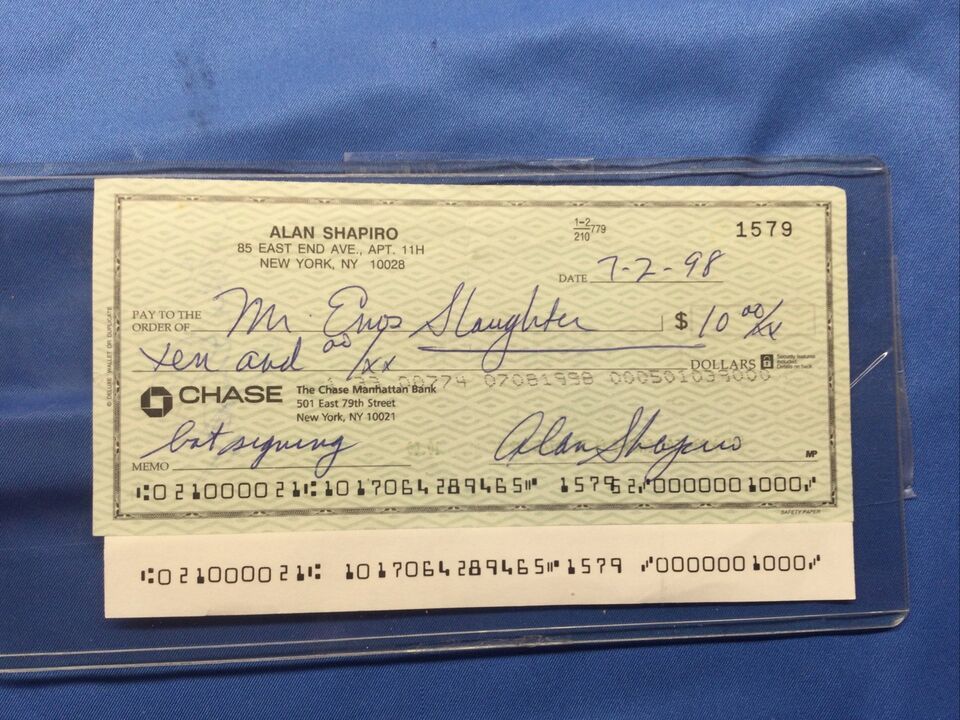 ALAN SHAPIRO
85 EAST END AVE., APT. 11H
NEW YORK, NY 10028
1-2/210 779
1579
DATE 7-2-98
PAY TO THE ORDER OF Mr. Enos Slaughter $ 10 00/xx
Ten and 00/xx DOLLARS
Security features included. Details on back.
00774 07081998 000501039000
CHASE The Chase Manhattan Bank
501 East 79th Street
New York, NY 10021
MEMO bat signing Alan Shapiro MP
⑆021000021⑆ 1017064289465⑈ 1579 62 ⑇0000001000⑇
SAFETY PAPER
© DELUXE WALLET OR DUPLICATE
⑆021000021⑆ 1017064289465⑈ 1579 ⑇0000001000⑇